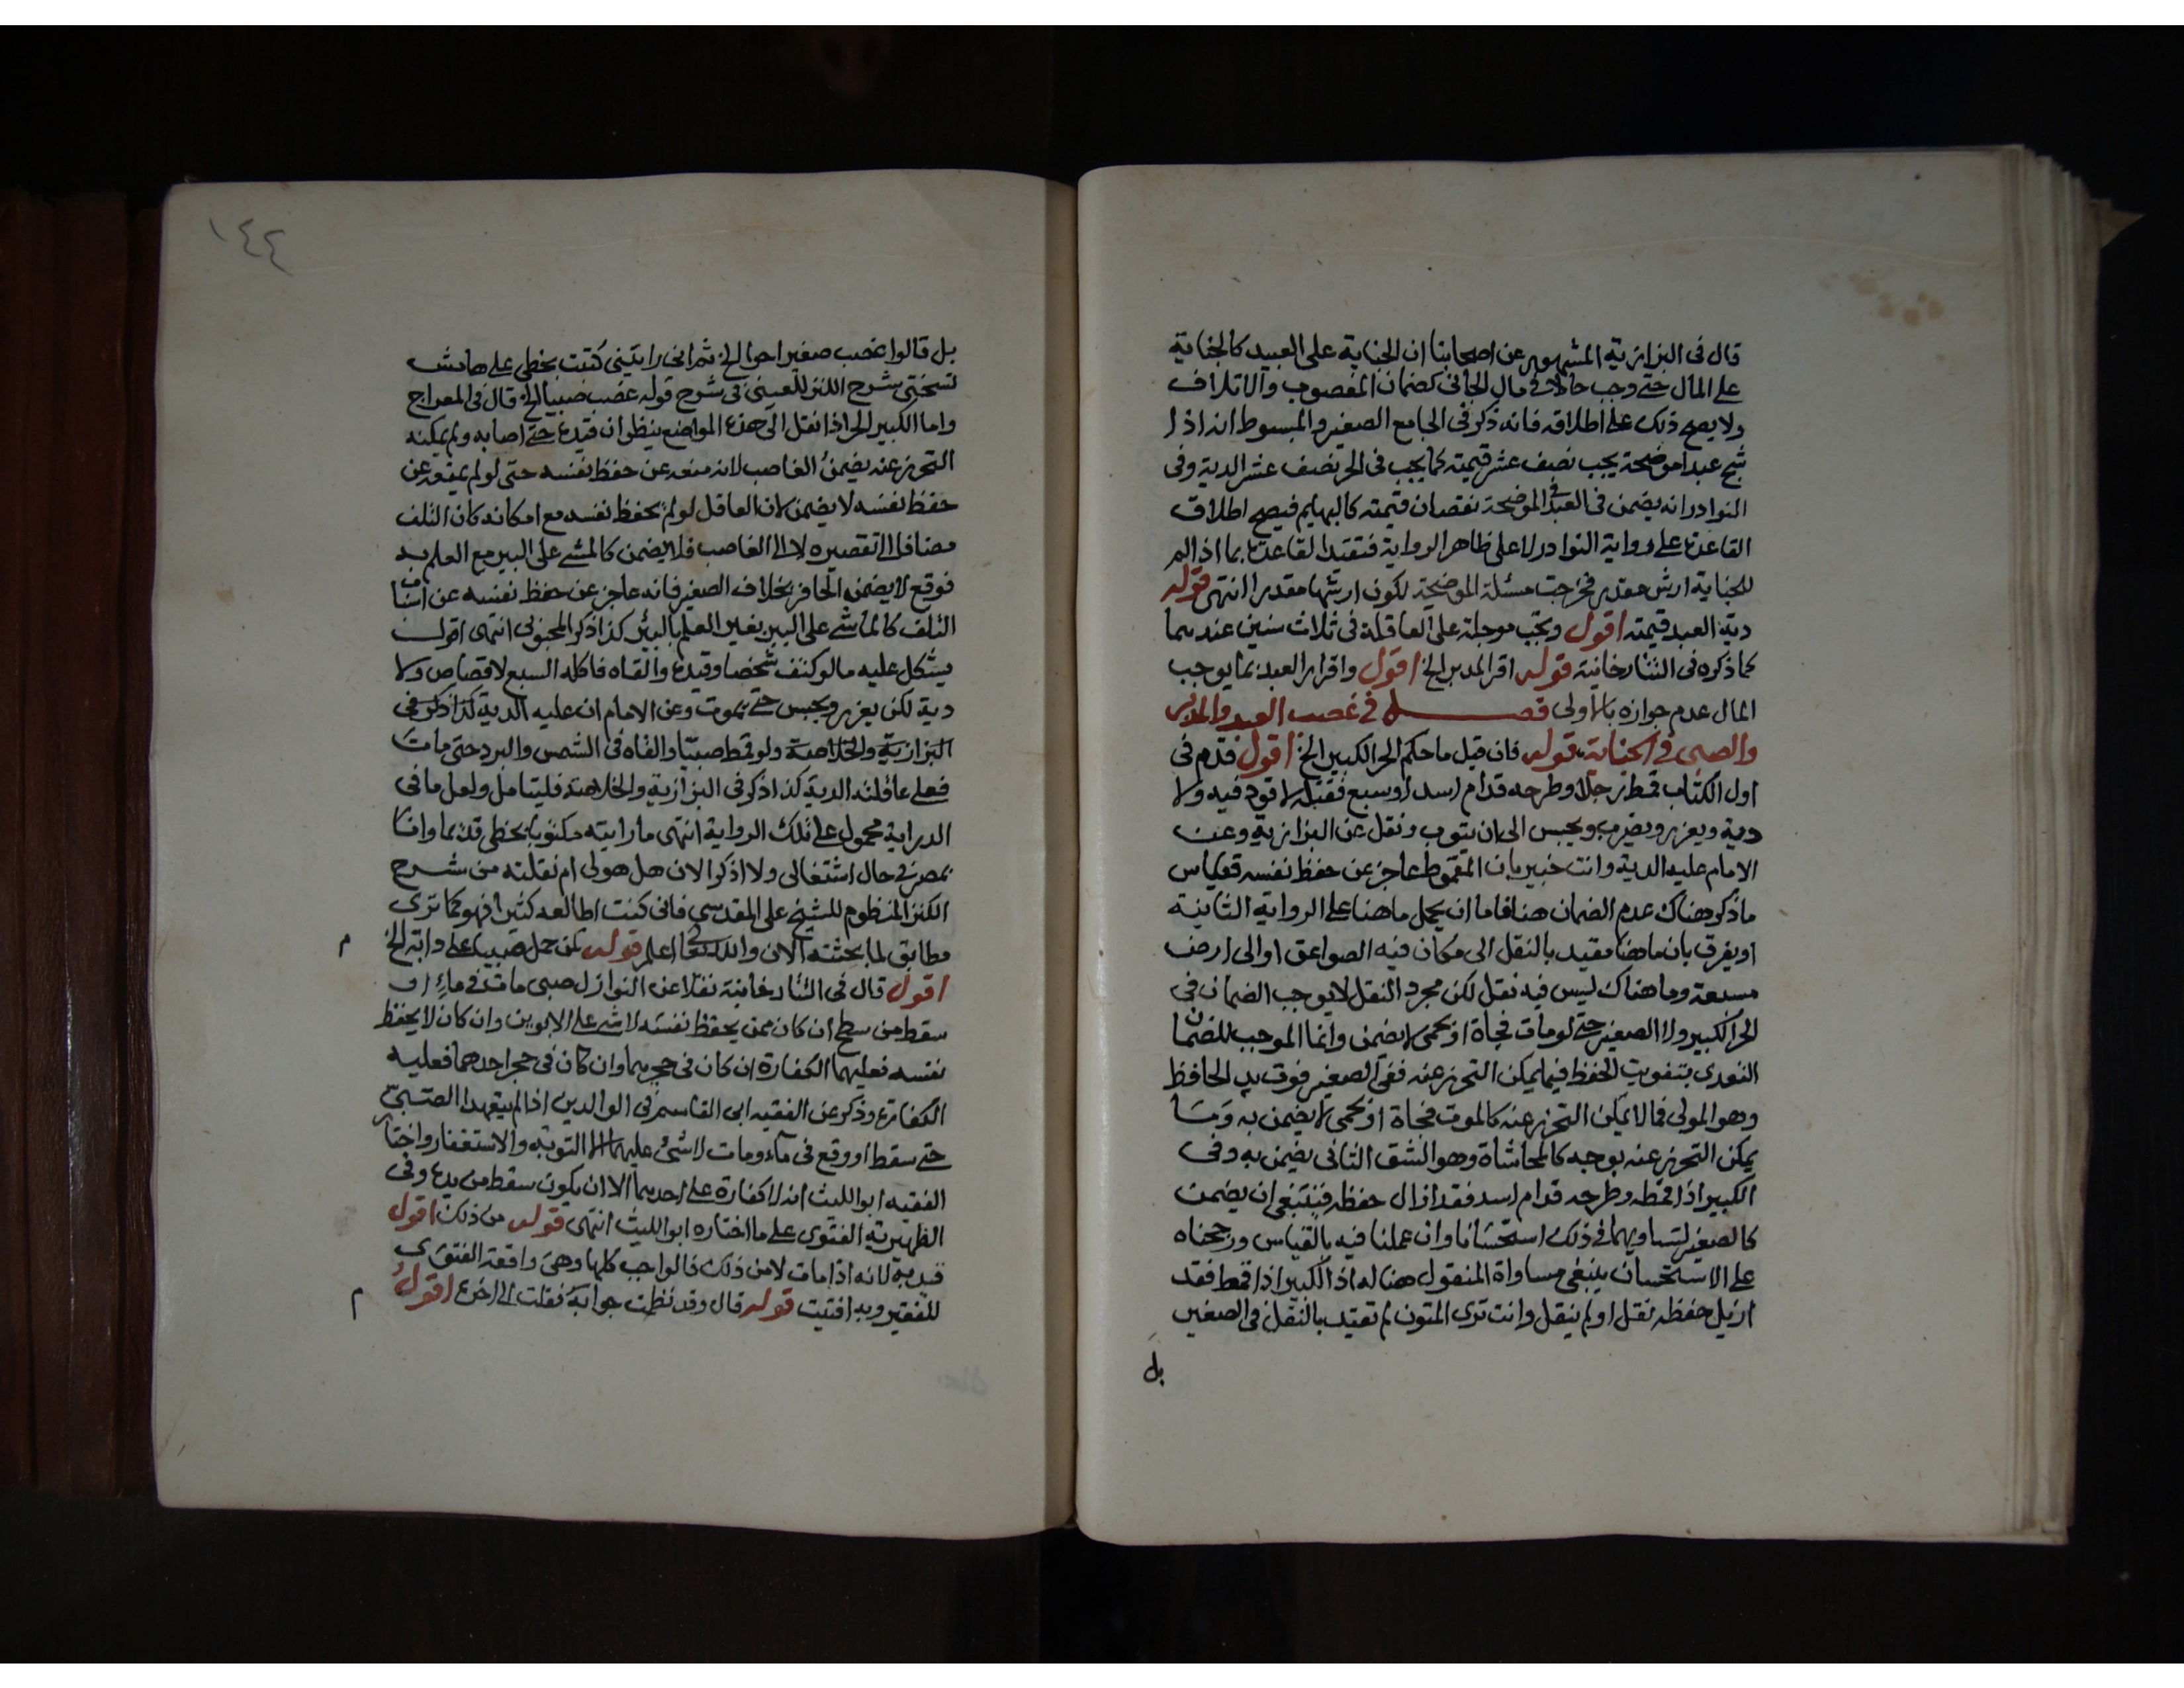 قال فى البزازية المشهور عن اصحابنا ان الجناية على العبيد كالجناية
على المال حتى وجب حالا فى مال الجانى كضمان المغصوب والاتلاف
ولا يصح ذلك على اطلاقه فانه ذكر فى الجامع الصغير والمبسوط انه اذا
شج عبدا موضحة يجب نصف عشر قيمته كما يجب فى الحر نصف عشر الدية وفى
النوادر انه يضمن فى العبد فى الموضحة نقصان قيمته كالبهايم فيصح اطلاق
القاعدة على رواية النوادر لا على ظاهر الرواية فتقيد القاعدة بما اذا لم
للجناية ارش مقدر فخرجت مسئلة الموضحة لكون ارشها مقدرا انتهى قوله
دية العبد قيمته اقول وتجب موجلة على العاقلة فى ثلاث سنين عندهما
كما ذكره فى التتارخانية قوله اقر المدبر الخ اقول واقرار العبد بما يوجب
المال عدم جوازه بالاولى فصل فى غصب العبد والمدبر
والصبى فى الجناية قوله فان قيل ما حكم الحر الكبير الخ اقول قدم فى
اول الكتاب قمط رجلا وطرحه قدام اسد او سبع فقتله لا قود فيه ولا
دية ويعزر ويضرب ويحبس الى ان يتوب ونقل عن البزازية وعن
الامام عليه الدية وانت خبير بان المقموط عاجز عن حفظ نفسه فقياس
ما ذكر هناك عدم الضمان هنا فاما ان يحمل ما هنا على الرواية الثانية
او يفرق بان ما هنا مقيد بالنقل الى مكان فيه الصواعق او الى ارض
مسبعة وما هناك ليس فيه نقل لكن مجرد النقل لا يوجب الضمان فى
الحر الكبير ولا الصغير حتى لو مات فجاة او بحمى لا يضمن وانما الموجب للضمان
التعدى بتفويت الحفظ فيما يمكن التحرز عنه ففى الصغير فوت يد الحافظ
وهو المولى فما لا يمكن التحرز عنه كالموت فجاة او بحمى لا يضمن به وما
يمكن التحرز عنه بوجه كالمحاشاة وهو الشق الثانى يضمن به وفى
الكبير اذا قمطه وطرحه قدام اسد فقد ازال حفظه فينبغى ان يضمن
كالصغير لتساويهما فى ذلك استحسانا وان عملنا فيه بالقياس ورجحناه
على الاستحسان ينبغى مساواة المنقول هنا له اذ الكبير اذا قمط فقد
ازيل حفظه نقل او لم ينقل وانت ترى المتون لم تقيد بالنقل فى الصغير
بل
١٤٤
بل قالوا غصب صغيرا حرا الخ ثم انى رايتنى كتبت بخطى على هامش
نسختى شرح الكنز للعينى فى شرح قوله غصب صبيا الخ قال فى المعراج
واما الكبير الحر اذا نقل الى هذه المواضع ينظر ان قيده حتى اصابه ولم يمكنه
التحرز عنه يضمن الغاصب لانه منعه عن حفظ نفسه حتى لو لم يمنعه عن
حفظ نفسه لا يضمن لان العاقل لو لم يحفظ نفسه مع امكانه كان التلف
مضافا الى تقصيره لا الى الغاصب فلا يضمن كالمشى على البير مع العلم به
فوقع لا يضمن الحافر بخلاف الصغير فانه عاجز عن حفظ نفسه عن اسباب
التلف كالماشى على البير بغير العلم بالبير كذا ذكر المحبوبى انتهى اقول
يشكل عليه ما لو كتف شخصا وقيده والقاه فاكله السبع لا قصاص ولا
دية لكن يعزر ويحبس حتى يموت وعن الامام ان عليه الدية كذا ذكر فى
البزازية والخلاصة ولو قمط صبيا والقاه فى الشمس والبرد حتى مات
فعلى عاقلته الدية كذا ذكر فى البزازية والخلاصة فليتامل ولعل ما فى
الدراية محمول على تلك الرواية انتهى ما رايته مكتوبا بخطى قديما وانا
بمصر فى حال اشتغالى ولا اذكر الان هل هو لى ام نقلته من شرح
الكنز المنظوم للشيخ على المقدسى فانى كنت اطالعه كثيرا فهو كما ترى
مطابق لما بحثته الان والله تعالى اعلم قوله كمن حمل صبيا على دابة الخ م
اقول قال فى التتارخانية نقلا عن النوازل صبى مات فى ماء او
سقط من سطح ان كان ممن يحفظ نفسه لا شى على الابوين وان كان لا يحفظ
نفسه فعليهما الكفارة ان كان فى حجرهما وان كان فى حجر احدهما فعليه
الكفارة وذكر عن الفقيه ابى القاسم فى الوالدين اذا لم يتعهدا الصبى
حتى سقط او وقع فى ماء ومات لا شئ عليهما الا التوبة والاستغفار واختار
الفقيه ابو الليث انه لا كفارة على احدهما الا ان يكون سقط من يده وفى
الظهيرية الفتوى على ما اختاره ابو الليث انتهى قوله من ذلك اقول
قيد به لانه اذا مات لا من ذلك فالواجب كلها وهى واقعة الفتوى
للفقير وبه افتيت قوله قال وقد نظمت جوابه فقلت الى اخره اقول م